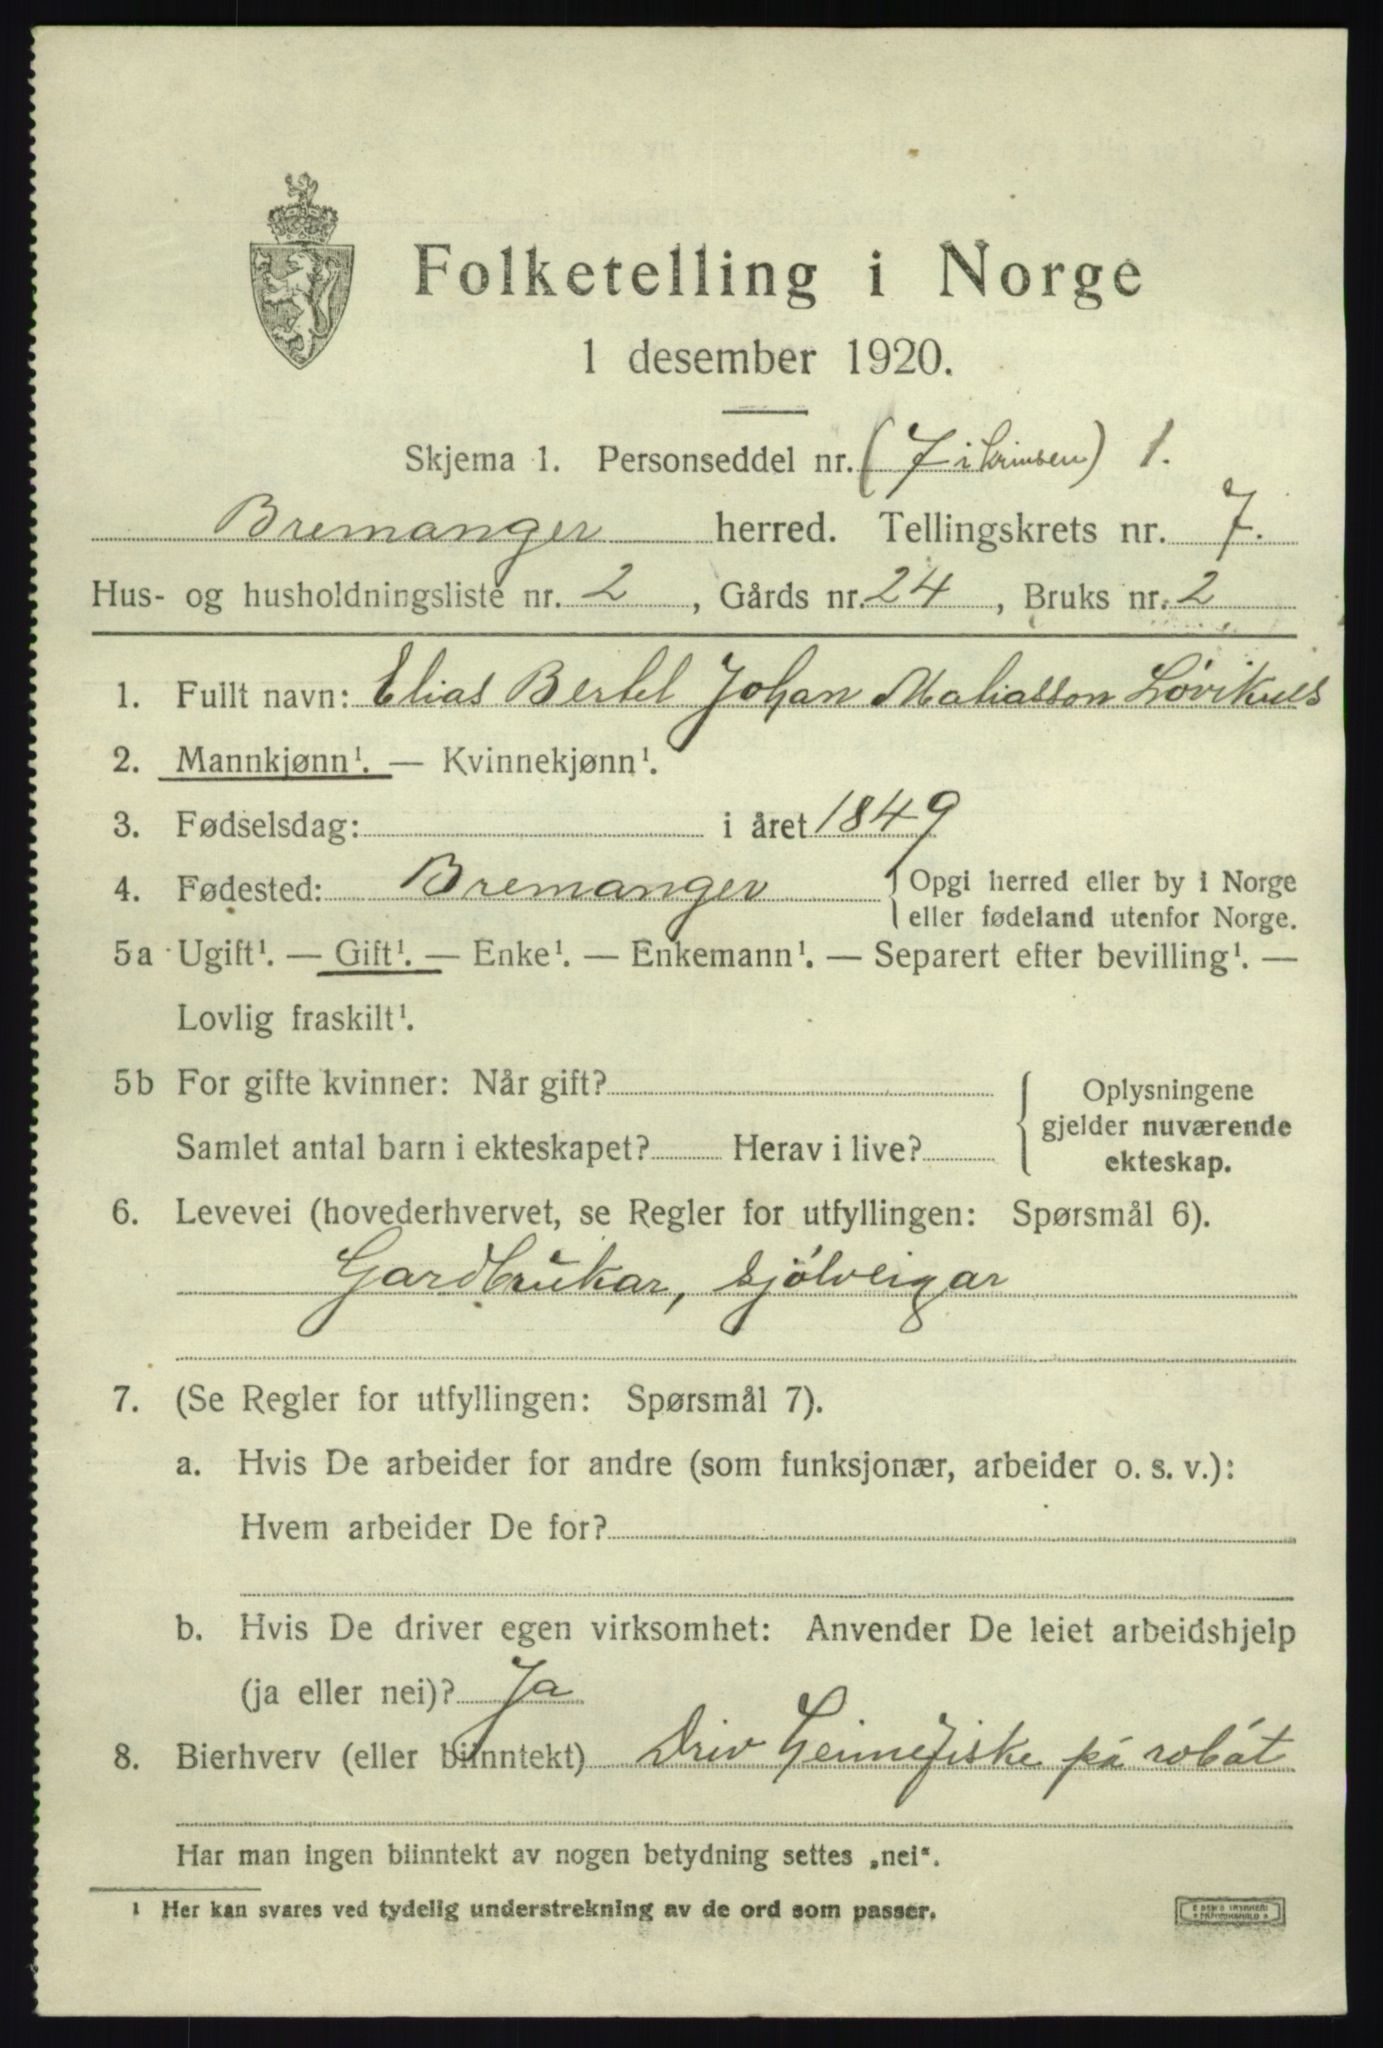 Folketelling i Norge
1 desember 1920.
Skjema 1. Personseddel nr. (7 i krinsen) 1.
Bremanger herred. Tellingskrets nr. 7.
Hus- og husholdningsliste nr. 2, Gårds nr. 24, Bruks nr. 2
1. Fullt navn: Elias Bertel Johan Matiasson
2. Mannkjønn¹. — Kvinnekjønn¹.
3. Fødselsdag: i året 1849
4. Fødested: Bremanger
Opgi herred eller by i Norge
eller fødeland utenfor Norge.
5a Ugift¹. — Gift¹. — Enke¹. — Enkemann¹. — Separert efter bevilling¹. —
Lovlig fraskilt¹.
5b For gifte kvinner: Når gift?
Samlet antal barn i ekteskapet? Herav i live?
Oplysningene
gjelder nuværende
ekteskap.
6. Levevei (hovederhvervet, se Regler for utfyllingen: Spørsmål 6).
Gardbrukar, sjølveigar
7. (Se Regler for utfyllingen: Spørsmål 7).
a. Hvis De arbeider for andre (som funksjonær, arbeider o. s. v.):
Hvem arbeider De for?
b. Hvis De driver egen virksomhet: Anvender De leiet arbeidshjelp
(ja eller nei)? Ja
8. Bierhverv (eller biinntekt) Driv heimefiske på robåt
Har man ingen biinntekt av nogen betydning settes „nei“.
¹ Her kan svares ved tydelig understrekning av de ord som passer.